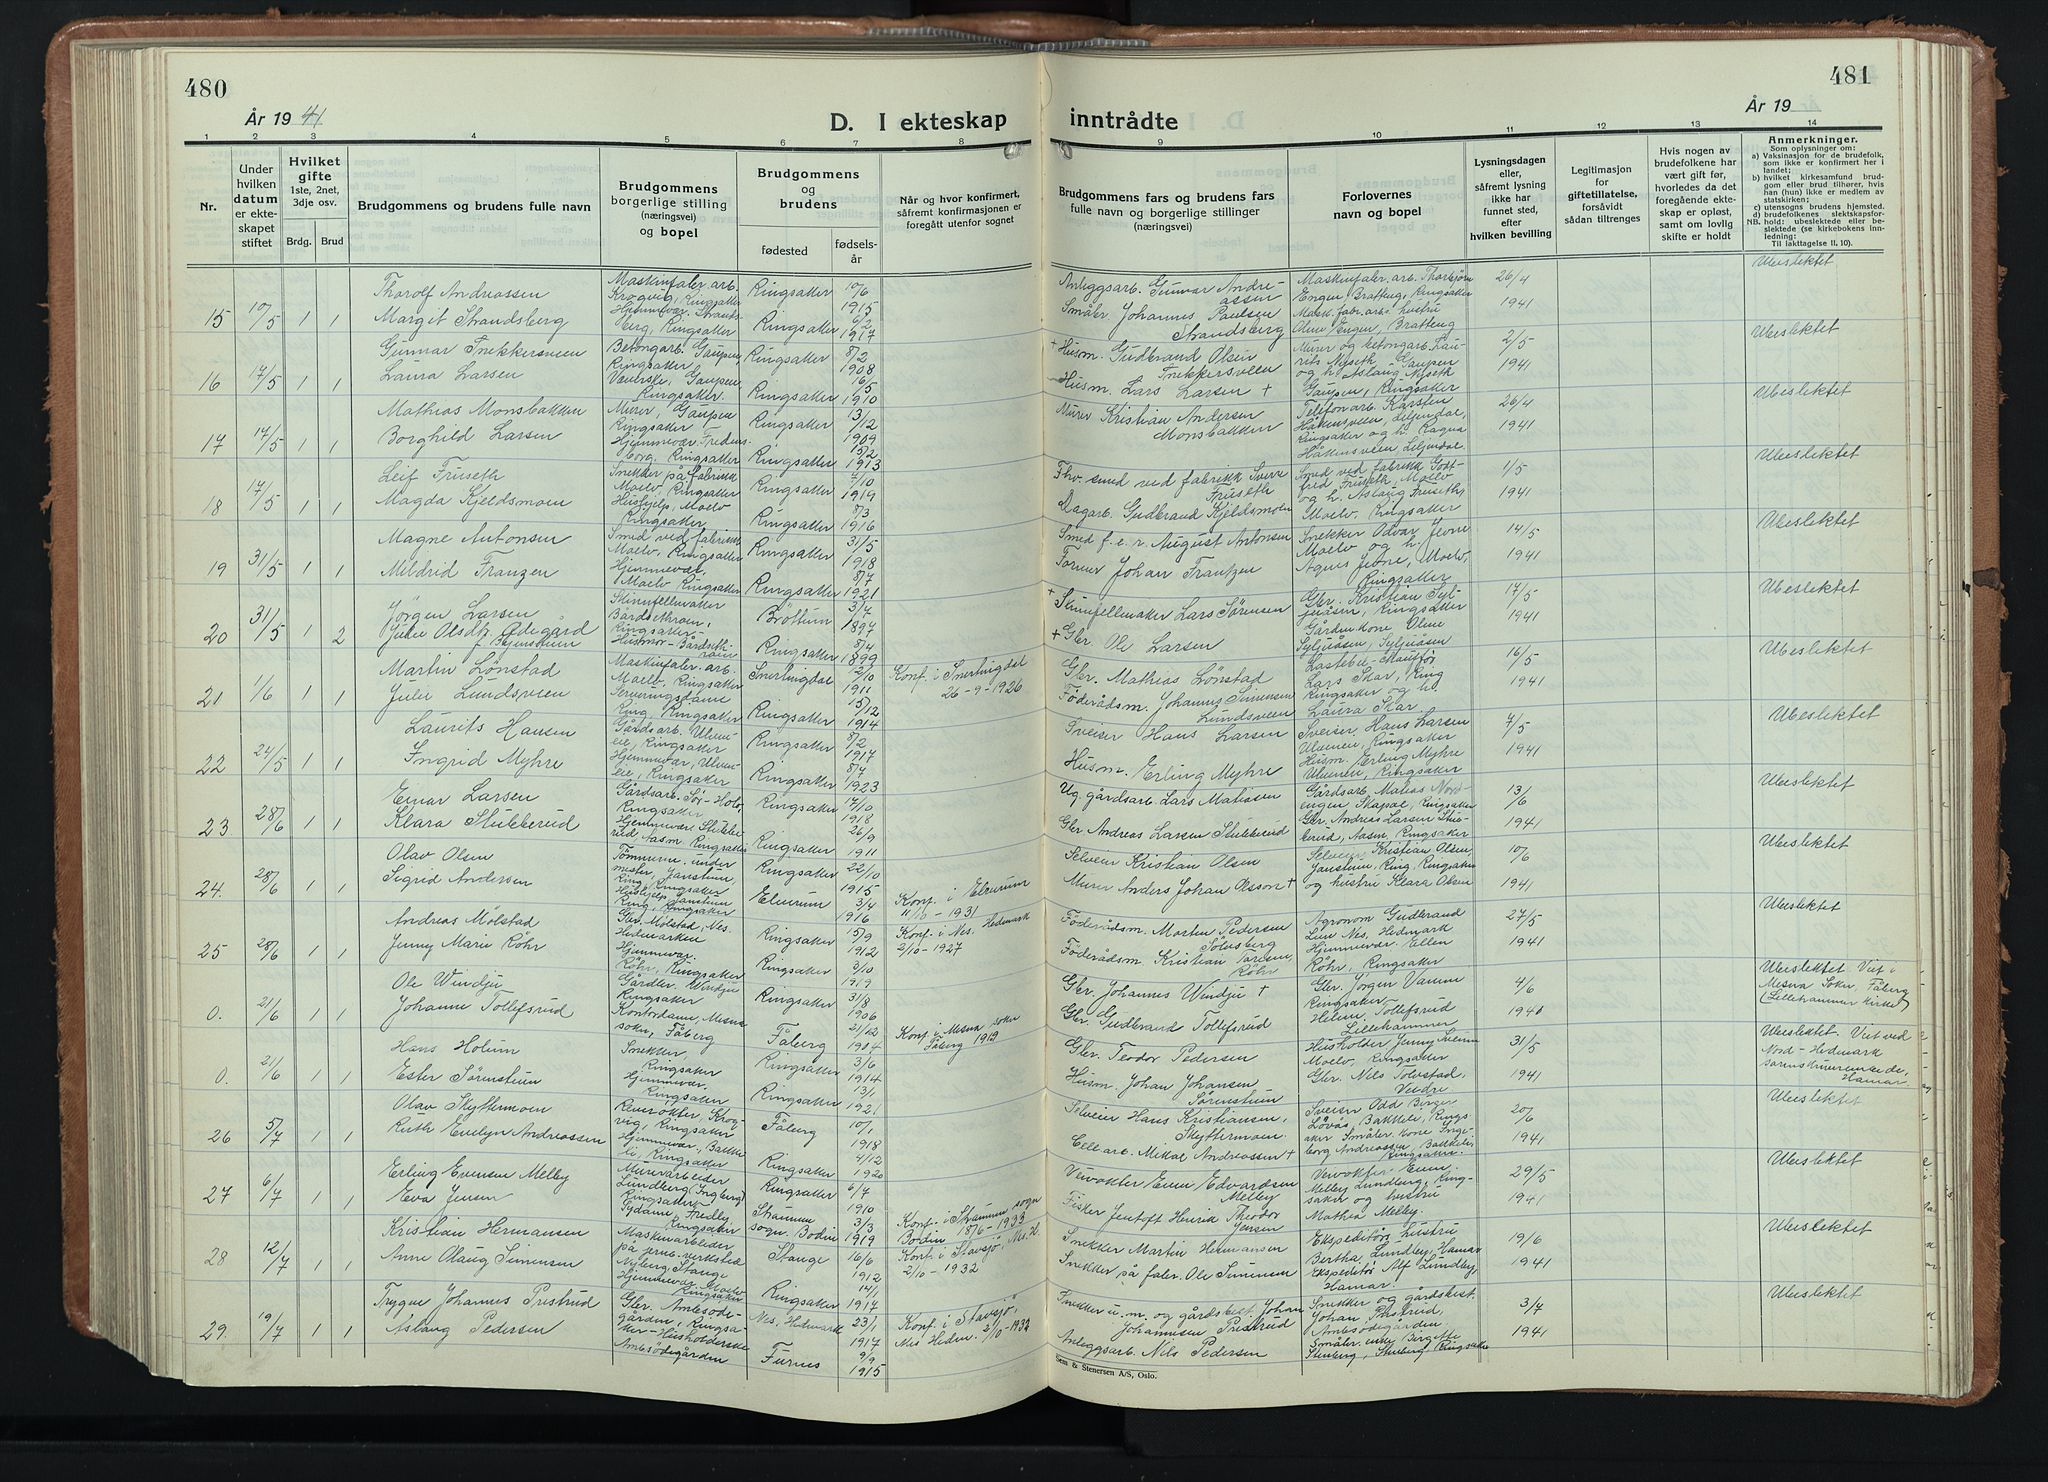 480
År 1941
D. I ekteskap inntrådte
481
År 19
1 2 3 4 5 6 7 8 9 10 11 12 13 14
Nr.
Under hvilken datum er ekteskapet stiftet
Hvilket gifte 1ste, 2net, 3dje osv.
Brdg. Brud
Brudgommens og brudens fulle navn
Brudgommens borgerlige stilling (næringsvei) og bopel
Brudgommens og brudens
fødested
fødselsår
Når og hvor konfirmert, såfremt konfirmasjonen er foregått utenfor sognet
Brudgommens fars og brudens fars fulle navn og borgerlige stillinger (næringsvei)
Forlovernes navn og bopel
Lysningsdagen eller, såfremt lysning ikke har funnet sted, efter hvilken bevilling
Legitimasjon for giftetillatelse, forsåvidt sådan tiltrenges
Hvis nogen av brudefolkene har vært gift før, hvorledes da det foregående ekteskap er opløst, samt om lovlig skifte er holdt
Anmerkninger.
Som oplysninger om:
a) Vaksinasjon for de brudefolk, som ikke er konfirmert her i landet;
b) hvilket kirkesamfund brudgom eller brud tilhører, hvis han (hun) ikke er medlem av statskirken;
c) utensogns brudens hjemsted.
d) brudefolkenes slektskapsforhold: ubeslektede eller beslektede (se kirkebokens innledning:
NB. Til iakttagelse II, 10).
15 10/5 1 1 Thorolf Andreassen
Margit Strandsberg
Maskinfabr. arb. Krogvig, Ringsaker
Hjemmevær. Strandsberg, Ringsaker
Ringsaker 10/6 1915
Ringsaker 6/2 1917
Anleggsarb. Gunvar Andreassen
Småbr. Johannes Paulsen Strandsberg
Maskinfabr. arb. Thorbjørn Engen, Bratteng, Ringsaker
Mask. fabr. arbs hustru Oline Engen, Bratteng
26/4 1941
Ubeslektet
16 17/5 1 1 Gunnar Snekkersveen
Laura Larsen
Betongarb. Gaupen, Ringsaker
Gaupen, Ringsaker.
Ringsaker 8/2 1908
Ringsaker 16/5 1910
+ Husm. Gudbrand Olsen Snekkersveen
Husm. Lars Larsen +
Murer og betongarb. Laurits Nyseth Gaupen og h. Aslaug Nyseth Gaupen, Ringsaker
2/5 1941
Ubeslektet
17 17/5 1 1 Mathias Monsbakken
Borghild Larsen
Murer, Gaupen Ringsaker
Hjemmevær. Fredensborg, Ringsaker
Ringsaker 13/12 1909
Ringsaker 15/2 1913
Murer Kristian Andersen Monsbakken
Telefonarb. Karsten Håkensveen, Liljendal, Ringsaker og h. Ragna Håkensveen Liljendal
26/4 1941
Ubeslektet
18 17/5 1 1 Leif Fruseth
Magda Kjeldsmoen
Snekker på fabrikk Moelv, Ringsaker
Hushjelp, Moelv Ringsaker
Ringsaker 7/10 1919
Ringsaker 8/3 1916
Fhv. smed ved fabrikk Sverre Fruseth
Dagarb. Gudbrand Kjeldsmoen
Smed ved fabrikk Gottfred Fruseth, Moelv og h. Aslaug Fruseth, Moelv, Ringsaker
1/5 1941
Ubeslektet
19 31/5 1 1 Magne Antonsen
Mildrid Franzen
Smed ved fabrikk Moelv, Ringsaker
Hjemmevær, Moelv Ringsaker
Ringsaker 31/5 1918
Ringsaker 8/7 1921
Smed f.e.r. August Antonsen
Former Johan Frantzen
Snekker Odvar Jevne Moelv og h. Agnes Jevne, Moelv, Ringsaker
14/5 1941
Ubeslektet
20 31/5 1 2 Jørgen Larsen
Julie Olsdtr. Ødegård
Skinnfellmaker Bårdsethroen, Ringsaker
Husmor - Bårdsethroen
Brøttum 3/4 1897
Ringsaker 8/4 1899
+ Skinnfellmaker Lars Sørensen
+ Gbr. Ole Larsen
Gbr. Kristian Syljuåsen, Ringsaker
Gårdm. kone Oline Syljuåsen, Syljuåsen
17/5 1941
Ubeslektet
21 1/6 1 1 Martin Lønstad
Julie Lundsveen
Maskinfabr. arb Moelv, Ringsaker
Serveringsdame Ring, Ringsaker
Snertingdal 2/10 1911
Ringsaker 15/12 1914
Konf. i Snertingdal 26-9-1926
Gbr. Mathias Lønstad
Föderådsm. Johannes Simensen Lundsveen
Lastebil-chauffør Lars Skar, Ring Ringsaker og h. Laura Skar.
16/5 1941
Ubeslektet
22 24/5 1 1 Laurits Hansen
Ingrid Myhre
Gårdsarb. Ulveneie, Ringsaker
Hjemmevær, Ulveneie, Ringsaker
Ringsaker 8/2 1917
Ringsaker 8/7 1923
Sveiser Hans Larsen
Husm. Erling Myhre
Sveiser, Hans Larsen Ulveneie, Ringsaker
Husm. Erling Myhre Ulveneie, Ringsaker
7/5 1941
Ubeslektet
23 28/6 1 1 Einar Larsen
Klara Stubberud
Gårdsarb. Sør-Holo, Ringsaker
Hjemmevære Stubberud, Aasm. Ringsaker
Ringsaker 17/10 1918
Ringsaker 26/9 1911
Ug. gårdsarb. Lars Matiasen
Gbr. Andreas Larsen Stubberud
Gårdsarb. Matias Nordengen Skapal, Ringsaker
Gbr. Andreas Larsen Stubberud, Aasm, Ringsaker
13/6 1941
Ubeslektet
24. 28/6 1 1 Olav Olsen
Sigrid Andersen
Ring, Ringsaker
Hushjelp Ring, Ringsaker
Ringsaker 22/10 1915
Elverum 3/4 1916
Konf. i Elverum 11/10 - 1931
Selveier Kristian Olsen
Murer Anders Johan Olsson +
Selveier Kristian Olsen, Ring, Ringsaker og hustru Klara Olsen
10/6 1941
Ubeslektet
25 28/6 1 1 Andreas Mølstad
Jenny Marie Røhr
Gbr. Mølstad, Nes. Hedmarken
Hjemmevær. Røhr, Ringsaker
Ringsaker 15/9 1912
Ringsaker 3/10 1919
Konf. i Nes. Hedmark 2/10-1927
Föderådsm. Morten Pedersen Sölvsberg
Föderådsm. Kristian Torsen Røhr
Agronom Gudbrand Lien Nes, Hedmark
Hjemmevær. Ellen Røhr, Ringsaker
27/5 1941
Ubeslektet
0. 21/6 1 1 Ole Windju
Johanne Tollefsrud
Gårdbr. Windju Ringsaker
Kontordame, Mesna sokn, Fåberg
Ringsaker 31/8 1906
Fåberg 21/12 1904
Konf. i Mesna sokn Fåberg 1919
Gbr. Johannes Windju +
Gbr. Gudbrand Tollefsrud
Gbr. Jørgen Ringsaker
Helene Tollefsrud Lillehammer
4/6 1941
Ubeslektet. Viet i Mesna Sokn, Fåberg (Lillehammer kirke)
0. 21/6 1 1 Hans Holum
Ester Sørenstuen
Snekker, Ringsaker
Hjemmevær. Ringsaker
Ringsaker 3/6 1914
Ringsaker 13/1 1921
Gbr. Teodor Pedersen
Husm. Johan Johansen Sørenstuen
Husholder Jenny Moelv, Ringsaker
Gbr. Nils Tolvstad, Veldre
31/5 1941
Ubeslektet. Viet ved Nord-Hedmark sorenskriverembede, Hamar
26 5/7 1 1 Olav Skyttermoen
Ruth Evelyn Andreassen
Reverøkter, Krogvig, Ringsaker
Hjemmevær., Bakkeli, Ringsaker
Fåberg 10/1 1918
Ringsaker 4/12 1920
Selveier Hans Kristiansen, Skyttermoen
Cellearb. Mikal Andreassen +
Sveiser Odd Birger Løvås, Bakkeli, Ringsaker Småbr. kone Ingeborg Andreassen, Bakkeli Ringsaker.
20/6 1941
Ubeslektet
27 6/7 1 1 Erling Evensen Melby
Eva Jensen
Murerarbeider Lundberg (Ingberg) Ringsaker
Sydame, Fredly Ringsaker
Ringsaker 6/7 1910
Straumen sogn. Bodin 3/3 1919
Konf. i Straumen sogn Bodin 18/6 - 1933
Veivokter Even Edvardsen Melby
Fisker Jentoft Henrik Theodor Jensen
Veivokter Even Melby Lundberg, Ringsaker og hustru Mathea Melby.
29/5 1941
Ubeslektet
28 12/7 1 1 Kristian Hermansen
Anne Olaug Simensen
Maskinarbeider på jernb. verksted Nyberg, Stange
Hjemmevær, Moelv Ringsaker
Stange 16/6 1912
Ringsaker 14/1 1917
Konf. i Stavsjø, Nes. H. 2/10-1932
Snekker Martin Hermansen
Snekker på fabr. Ole Simensen
Ekspeditørs hustru Bertha Lundby, Hamar
Ekspeditør Alf Lundby, Hamar
19/6 1941
Ubeslektet
29. 19/7 1 1 Trygve Johannes Prestrud
Aslaug Pedersen
Gbr. Ambsødegården, Ringsaker - Husholderske Ambsødegården
Nes. Hedmark 23/1 1917
Furnes 9/9 1915
Konf. i Stavsjø, Nes Hedm. 2/10-1932
Snekker u.m. og gårdsbest. Johan Johannesen Prestrud
Anleggsarb. Nils Pedersen
Snekker og gårdsbest. Johan Prestrud, Ambsødegården
Småbr. enke Birgitte Stenberg, Stenberg, Ringsaker
3/7 1941
Ubeslektet
Sem & Stenersen A/S, Oslo.